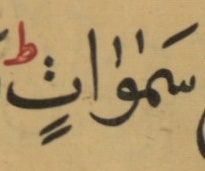 سَمٰوٰاتٍ ط